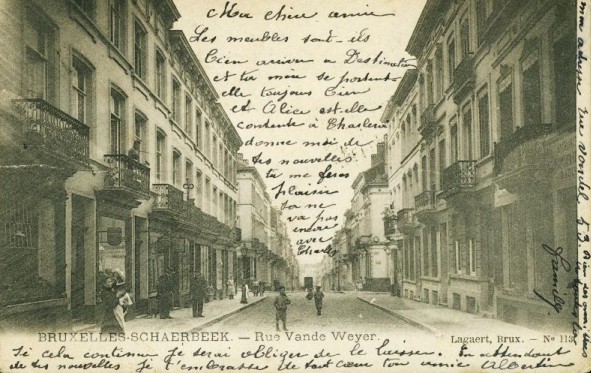 Ma chère amie
Les meubles sont-ils
bien arriver a Destination
et ta mère se portent-
elle toujours bien
et Alice est-elle
contente à Charleroi
donne moi de
tes nouvelles
tu me feras
plaisir
ta ne
va pas
encore
avec
Charles
BRUXELLES-SCHAERBEEK. — Rue Vande Weyer.
Lagaert, Brux. — No 113
Si cela continue je serai obliger de le laisser. En attendant
de tes nouvelles je t'embrasse de tout cœur ton amie Albertine
mon adresse rue Vondel 53